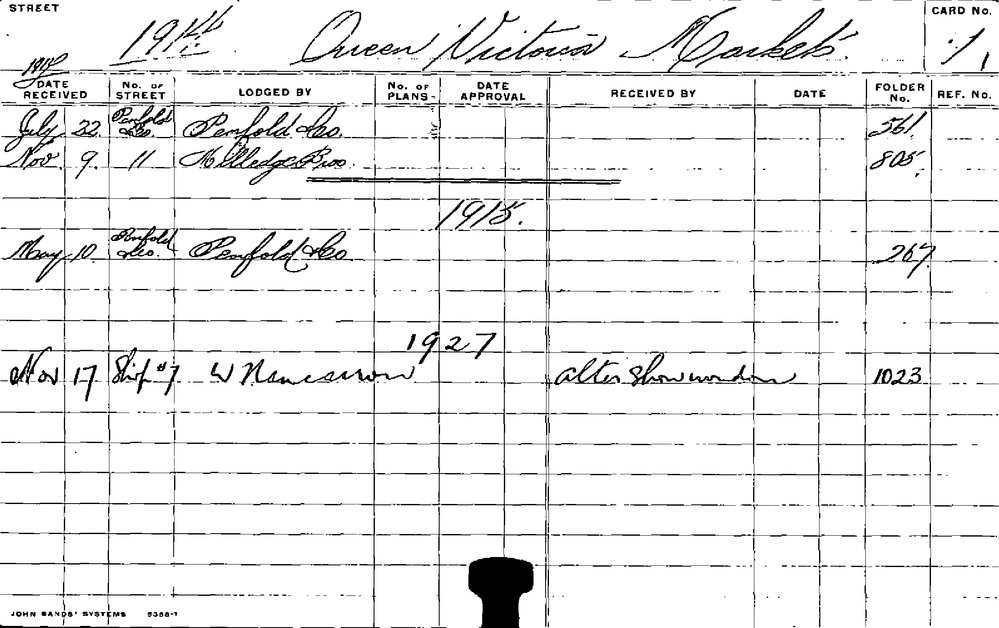 STREET
CARD No.
1914 Queen Victoria Markets 1,
1914
DATE RECEIVED No. OF STREET LODGED BY No. OF PLANS- DATE APPROVAL RECEIVED BY DATE FOLDER No. REF. No.
July 22. Penfold &Co. Penfold &Co. 561.
Nov. 9. 11 Bros 805.
1915.
May 10. Penfold &Co. Penfold &Co 267.
1927
Nov 17 Shop #7 W alter show window 1023
JOHN SANDS' SYSTEMS